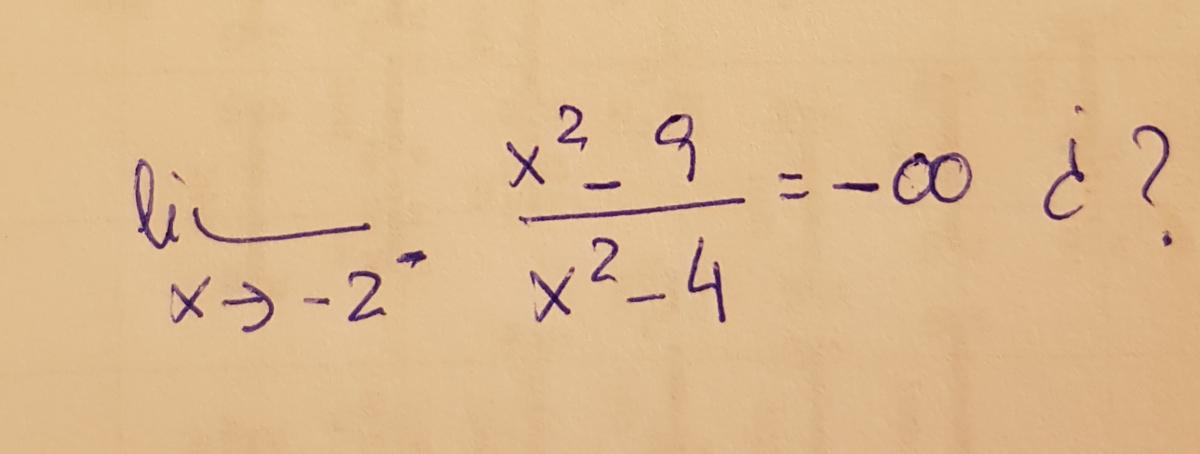 lim x→-2⁻ (x²-9)/(x²-4) = -∞ ¿?